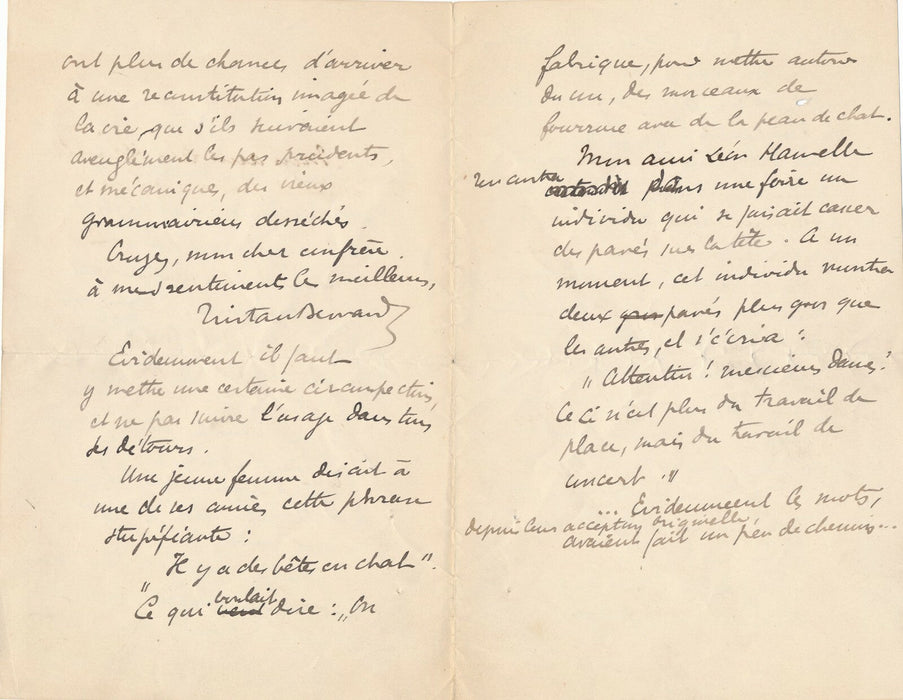 ont plus de chances d'arriver
à une reconstitution imagée de
la vie, que s'ils suivaient
aveuglément les pas
et mécaniques, des vieux
grammairiens desséchés.
Croyez, mon cher confrère
à mes sentiments les meilleurs,
Tristan Bernard
Evidemment il faut
y mettre une certaine circonspection,
et ne pas suivre l'usage dans tous
ses détours.
Une jeune femme disait à
une de ses amies cette phrase
stupéfiante :
"Il y a des bêtes en chat".
Ce qui veut voulait dire : "On
fabrique, pour mettre autour
du cou, des morceaux de
fourrure avec de la peau de chat.
Mon ami Léon
rencontra dans une foire un
individu qui se faisait casser
des pavés sur la tête. A un
moment, cet individu montra
deux gros pavés plus gros que
les autres, et s'écria :
"Attention ! messieurs dames !
Ceci n'est plus du travail de
place, mais du travail de
concert."
... Evidemment les mots,
depuis leur acception originelle
avaient fait un peu de chemin...